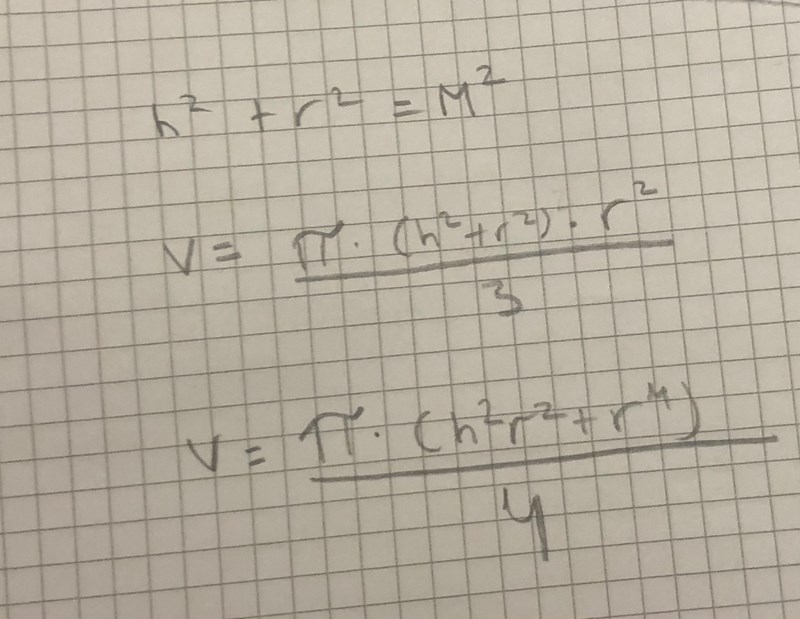 h² + r² = M²
V = π · (h² + r²) · r² / 3
V = π · (h²r² + r⁴) / 4